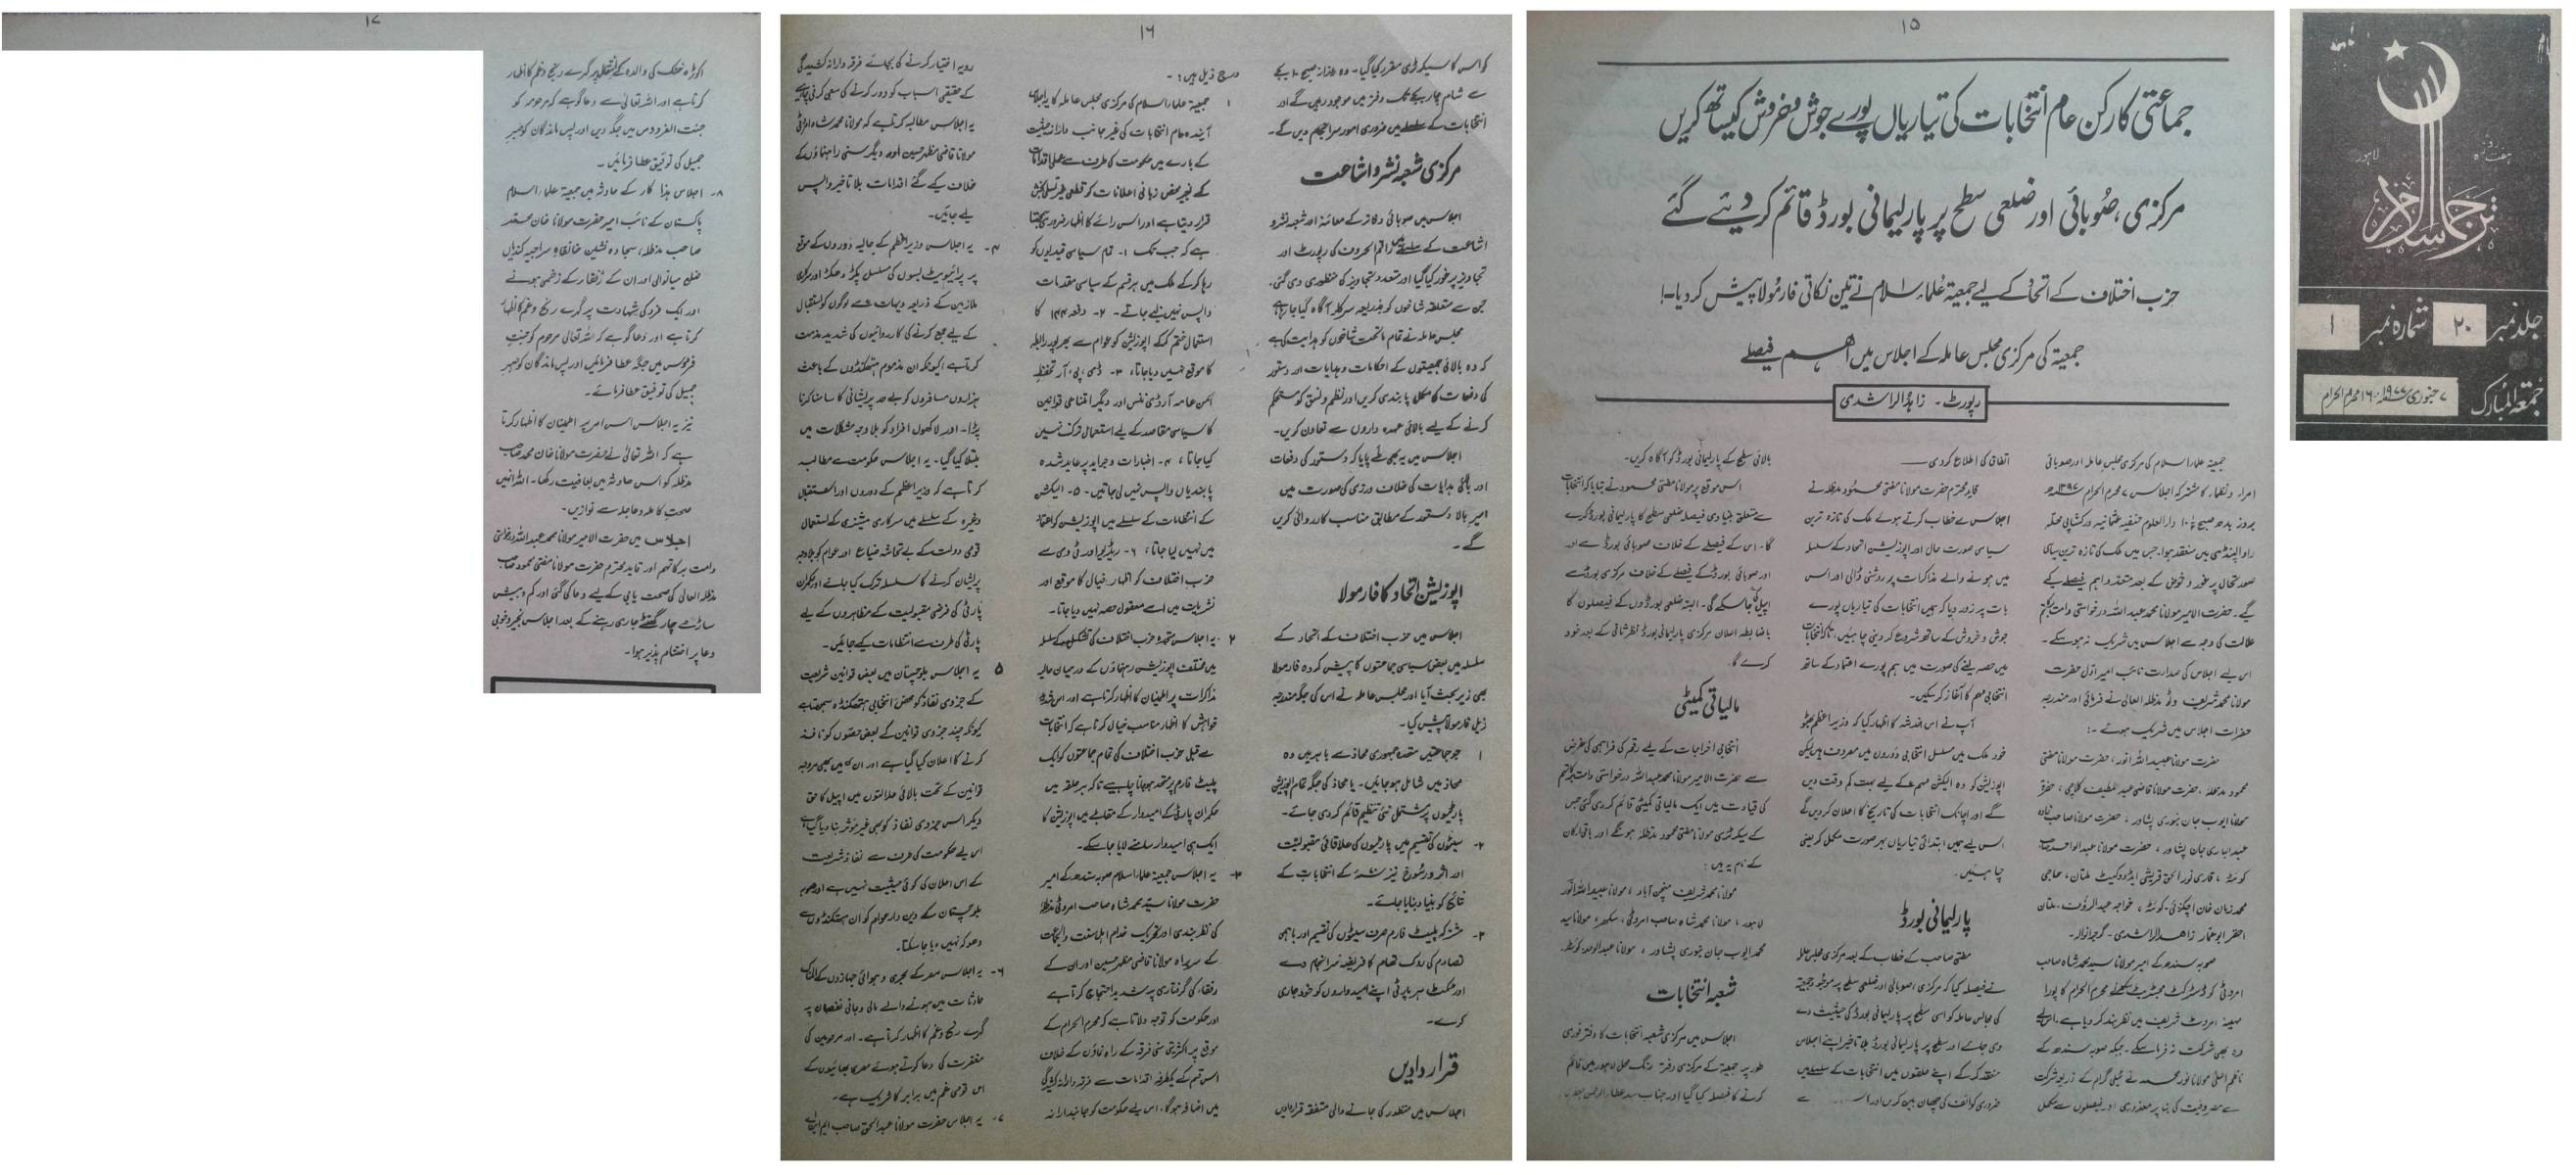 ہفت روزہ
لاہور
ترجمان اسلام
جلد نمبر ۲۰ شمارہ نمبر ۱
جمعۃ المبارک ۷ جنوری ۱۹۷۷ء ۱۶ محرم الحرام
۱۵
جماعتی کارکن عام انتخابات کی تیاریاں پورے جوش و خروش کیساتھ کریں
مرکزی، صُوبائی اور ضلعی سطح پر پارلیمانی بورڈ قائم کر دیئے گئے
حزب اختلاف کے اتحاد کے لیے جمعیۃ عُلماء اسلام نے تین نکاتی فارمُولا پیش کر دیا۔!
جمعیۃ کی مرکزی مجلس عاملہ کے اجلاس میں اہم فیصلے
رپورٹ - زاہد الراشدی
جمعیۃ علماء اسلام کی مرکزی مجلس عاملہ اور صوبائی
امراء و نظماء کا مشترکہ اجلاس ۷ محرم الحرام ۱۳۹۷ھ
بروز بدھ صبح ۱۰ دارالعلوم حنفیہ عثمانیہ ورکشاپی محلہ
راولپنڈی میں منعقد ہوا۔ جس میں ملک کی تازہ ترین سیاسی
صورتحال پر غور و خوض کے بعد متعدد اہم فیصلے کیے
گئے۔ حضرت الامیر مولانا محمد عبد اللہ درخواستی دامت برکاتہم
علالت کی وجہ سے اجلاس میں شریک نہ ہو سکے۔
اس لیے اجلاس کی صدارت نائب امیر اول حضرت
مولانا محمد شریف وٹو مدظلہ العالی نے فرمائی اور مندرجہ
حضرات اجلاس میں شریک ہوئے :۔
حضرت مولانا عبید اللہ انور، حضرت مولانا مفتی
محمود مدظلہ، حضرت مولانا قاضی عبد اللطیف کلاچی، حضرت
مولانا ایوب جان بنوری پشاور، حضرت مولانا صاحبزادہ
عبدالباری جان پشاور، حضرت مولانا عبدالواحد صاحب
کوئٹہ، قاری نور الحق قریشی ایڈووکیٹ ملتان، حاجی
محمد زمان خان اچکزئی کوئٹہ، خواجہ عبدالرؤف ملتان
احقر ابو عمار زاہد الراشدی۔ گوجرانوالہ۔
صوبہ سندھ کے امیر مولانا سید محمد شاہ صاحب
امروٹی کو ڈسٹرکٹ مجسٹریٹ سکھر نے محرم الحرام کا پورا
مہینہ امروٹ شریف میں نظر بند کر دیا ہے۔ اس لیے
وہ بھی شرکت نہ فرما سکے۔ جبکہ صوبہ سندھ کے
ناظم اعلیٰ مولانا نور محمد نے ٹیلی گرام کے ذریعہ شرکت
سے مصروفیت کی بنا پر معذوری اور فیصلوں سے مکمل
اتفاق کی اطلاع کر دی
قائد محترم حضرت مولانا مفتی محمود مدظلہ نے
اجلاس سے خطاب کرتے ہوئے ملک کی تازہ ترین
سیاسی صورت حال اور اپوزیشن اتحاد کے سلسلہ
میں ہونے والے مذاکرات پر روشنی ڈالی اور اس
بات پر زور دیا کہ ہمیں انتخابات کی تیاریاں پورے
جوش و خروش کے ساتھ شروع کر دینی چاہئیں، تاکہ انتخابات
میں حصہ لینے کی صورت میں ہم پورے اعتماد کے ساتھ
انتخابی مہم کا آغاز کر سکیں۔
آپ نے اس خدشہ کا اظہار کیا کہ وزیر اعظم بھٹو
خود ملک میں مسلسل انتخابی دوروں میں مصروف ہیں لیکن
اپوزیشن کو وہ الیکشن مہم کے لیے بہت کم وقت دیں
گے اور اچانک انتخابات کی تاریخ کا اعلان کر دیں گے
اس لیے ہمیں ابتدائی تیاریاں بہر صورت مکمل کر لینی
چاہئیں۔
پارلیمانی بورڈ
مفتی صاحب کے خطاب کے بعد مرکزی مجلس عاملہ
نے فیصلہ کیا کہ مرکزی، صوبائی اور ضلعی سطح پر موجود جمعیۃ
کی مجالس عاملہ کو اسی سطح پر پارلیمانی بورڈ کی حیثیت دے
دی جائے اور ہر سطح پر پارلیمانی بورڈ بلا تاخیر اپنے اجلاس
منعقد کر کے اپنے حلقوں میں انتخابات کے سلسلے میں
ضروری کوائف کی چھان بین کریں اور اس سے
بالائی سطح کے پارلیمانی بورڈ کو آگاہ کریں۔
اس موقع پر مولانا مفتی محمود نے بتایا کہ انتخابات
سے متعلق بنیادی فیصلہ ضلعی سطح کا پارلیمانی بورڈ کرے
گا۔ اس کے فیصلے کے خلاف صوبائی بورڈ سے اور
اور صوبائی بورڈ کے فیصلے کے خلاف مرکزی بورڈ سے
اپیل کی جا سکے گی۔ البتہ ضلعی بورڈوں کے فیصلوں کا
باضابطہ اعلان مرکزی پارلیمانی بورڈ نظر ثانی کے بعد خود
کرے گا۔
مالیاتی کمیٹی
انتخابی اخراجات کے لیے رقم کی فراہمی کی غرض
سے حضرت الامیر مولانا محمد عبد اللہ درخواستی دامت برکاتہم
کی قیادت میں ایک مالیاتی کمیٹی قائم کر دی گئی جس
کے سیکرٹری مولانا مفتی محمود مدظلہ ہونگے اور باقی ارکان
کے نام یہ ہیں :
مولانا محمد شریف منچن آباد، مولانا عبید اللہ انور
لاہور، مولانا محمد شاہ صاحب امروٹی، سکھر، مولانا سید
محمد ایوب جان بنوری پشاور، مولانا عبدالواحد کوئٹہ۔
شعبہ انتخابات
اجلاس میں مرکزی شعبہ انتخابات کا دفتر فوری
طور پر جمعیۃ کے مرکزی دفتر رنگ محل لاہور میں قائم
کرنے کا فیصلہ کیا گیا اور جناب
۱۶
کو اس کا سیکرٹری مقرر کیا گیا۔ وہ روزانہ صبح ۱۰ بجے
سے شام چار بجے تک دفتر میں موجود رہیں گے اور
انتخابات کے سلسلے میں ضروری امور سر انجام دیں گے۔
مرکزی شعبہ نشر و اشاعت
اجلاس میں صوبائی دفاتر کے معائنہ اور شعبہ نشر و
اشاعت کے سلسلے میں راقم الحروف کی رپورٹ اور
تجاویز پر غور کیا گیا اور متعدد تجاویز کی منظوری دی گئی۔
جن سے متعلقہ شاخوں کو بذریعہ سرکلر آگاہ کیا جا رہا ہے
مجلس عاملہ نے تمام ماتحت شاخوں کو ہدایت کی ہے
کہ وہ بالائی جمعیتوں کے احکامات و ہدایات اور دستور
کی دفعات کی مکمل پابندی کریں اور نظم و نسق کو مستحکم
کرنے کے لیے بالائی عہدہ داروں سے تعاون کریں۔
اجلاس میں یہ بھی طے پایا کہ دستور کی دفعات
اور بالائی ہدایات کی خلاف ورزی کی صورت میں
امیر بالا دستور کے مطابق مناسب کارروائی کریں
گے۔
اپوزیشن اتحاد کا فارمولا
اجلاس میں حزب اختلاف کے اتحاد کے
سلسلہ میں بعض سیاسی جماعتوں کا پیش کردہ فارمولا
بھی زیر بحث آیا اور مجلس عاملہ نے اس کی جگہ مندرجہ
ذیل فارمولا پیش کیا۔
۱ جو جماعتیں متحدہ جمہوری محاذ سے باہر ہیں وہ
محاذ میں شامل ہو جائیں۔ یا محاذ کی جگہ تمام اپوزیشن
پارٹیوں پر مشتمل نئی تنظیم قائم کر دی جائے۔
۲۔ سیٹوں کی تقسیم میں پارٹیوں کی علاقائی مقبولیت
اور اثر و رسوخ نیز ۷۰ء کے انتخابات کے
نتائج کو بنیاد بنایا جائے۔
۳۔ مشترکہ پلیٹ فارم صرف سیٹوں کی تقسیم اور باہمی
تصادم کی روک تھام کا فریضہ سر انجام دے
اور ٹکٹ ہر پارٹی اپنے امیدواروں کو خود جاری
کرے۔
قراردادیں
اجلاس میں منظور کی جانے والی متفقہ قراردادیں
درج ذیل ہیں :۔
۱ جمعیۃ علماء اسلام کی مرکزی مجلس عاملہ کا یہ اجلاس
آیندہ عام انتخابات کی غیر جانب دارانہ حیثیت
کے بارے میں حکومت کی طرف سے عملی اقدامات
کے بغیر محض زبانی اعلانات کو قطعی غیر تسلی بخش
قرار دیتا ہے اور اس رائے کا اظہار ضروری سمجھتا
ہے کہ جب تک ۱۔ تمام سیاسی قیدیوں کو
رہا کر کے ملک میں ہر قسم کے سیاسی مقدمات
واپس نہیں لیے جاتے۔ ۲۔ دفعہ ۱۴۴ کا
استعمال ختم کر کے اپوزیشن کو عوام سے بھرپور رابطہ
کا موقع نہیں دیا جاتا، ۳۔ ڈی، پی، آر، تحفظ
امن عامہ آرڈی ننس اور دیگر امتناعی قوانین
کا سیاسی مقاصد کے لیے استعمال ترک نہیں
کیا جاتا، ۴۔ اخبارات و جراید پر عاید شدہ
پابندیاں واپس نہیں لی جاتیں۔ ۵۔ الیکشن
کے انتظامات کے سلسلے میں اپوزیشن کو اعتماد
میں نہیں لیا جاتا، ۶۔ ریڈیو اور ٹی وی سے
حزب اختلاف کو اظہار خیال کا موقع اور
نشریات میں اسے معقول حصہ نہیں دیا جاتا۔
۲ یہ اجلاس متحدہ حزب اختلاف کی تشکیل کے سلسلہ
میں مختلف اپوزیشن رہنماؤں کے درمیان حالیہ
مذاکرات پر اطمینان کا اظہار کرتا ہے اور اس
خواہش کا اظہار مناسب خیال کرتا ہے کہ انتخابات
سے قبل حزب اختلاف کی تمام جماعتوں کو ایک
پلیٹ فارم پر متحد ہو جانا چاہیے تاکہ ہر حلقہ میں
حکمران پارٹی کے امیدوار کے مقابلے میں اپوزیشن کا
ایک ہی امیدوار سامنے لایا جا سکے۔
۳۔ یہ اجلاس جمعیۃ علماء اسلام صوبہ سندھ کے امیر
حضرت مولانا سید محمد شاہ صاحب امروٹی مدظلہ
کی نظر بندی اور تحریک خدام اہل سنت والجماعت
کے سربراہ مولانا قاضی مظہر حسین اور ان کے
رفقاء کی گرفتاری پر شدید احتجاج کرتا ہے
اور حکومت کو توجہ دلاتا ہے کہ محرم الحرام کے
موقع پر اکثریتی سنی فرقہ کے راہ نماؤں کے خلاف
اس قسم کے یکطرفہ اقدامات سے فرقہ وارانہ کشیدگی
میں اضافہ ہوگا۔ اس لیے حکومت کو جانبدارانہ
رویہ اختیار کرنے کی بجائے فرقہ وارانہ کشیدگی
کے حقیقی اسباب کو دور کرنے کی سعی کرنی چاہیے
یہ اجلاس مطالبہ کرتا ہے کہ مولانا محمد شاہ امروٹی
مولانا قاضی مظہر حسین اور دیگر سنی راہنماؤں کے
خلاف کیے گئے اقدامات بلا تاخیر واپس
لیے جائیں۔
۴۔ یہ اجلاس وزیر اعظم کے حالیہ دوروں کے موقع
پر پرائیویٹ بسوں کی مسلسل پکڑ دھکڑ اور سرکاری
ملازمین کے ذریعہ دیہات سے لوگوں کو استقبال
کے لیے جمع کرنے کی کارروائیوں کی شدید مذمت
کرتا ہے، کیونکہ ان مذموم ہتھکنڈوں کے باعث
ہزاروں مسافروں کو بے حد پریشانی کا سامنا کرنا
پڑا۔ اور لاکھوں افراد کو بلا وجہ مشکلات میں
مبتلا کیا گیا۔ یہ اجلاس حکومت سے مطالبہ
کرتا ہے کہ وزیر اعظم کے دوروں اور استقبال
وغیرہ کے سلسلے میں سرکاری مشینری کے استعمال
قومی دولت کے بے تحاشہ ضیاع اور عوام کو بلا وجہ
پریشان کرنے کا سلسلہ ترک کیا جائے اور حکمران
پارٹی کی فرضی مقبولیت کے مظاہروں کے لیے
پارٹی کی طرف سے انتظامات کیے جائیں۔
۵ یہ اجلاس بلوچستان میں بعض قوانین شریعت
کے جزوی نفاذ کو محض انتخابی ہتھکنڈہ سمجھتا ہے
کیونکہ چند جزوی قوانین کے بعض حصوں کو نافذ
کرنے کا اعلان کیا گیا ہے اور ان میں بھی مروجہ
قوانین کے تحت بالائی عدالتوں میں اپیل کا حق
دیکر اس جزوی نفاذ کو بھی غیر مؤثر بنا دیا گیا ہے
اس لیے حکومت کی طرف سے نفاذ شریعت
کے اس اعلان کی کوئی حیثیت نہیں ہے اور صوبہ
بلوچستان کے دین دار عوام کو ان ہتھکنڈوں سے
دھوکہ نہیں دیا جا سکتا۔
۶۔ یہ اجلاس مصر کے بحری و ہوائی جہازوں کے المناک
حادثات میں ہونے والے مالی و جانی نقصان پر
گہرے رنج و غم کا اظہار کرتا ہے۔ اور مرحومین کی
مغفرت کی دعا کرتے ہوئے مصری بھائیوں کے
اس قومی غم میں برابر کا شریک ہے۔
۷۔ یہ اجلاس حضرت مولانا عبدالحق صاحب ایم این اے
۱۷
اکوڑہ خٹک کی والدہ کے انتقال پر گہرے رنج و غم کا اظہار
کرتا ہے اور اللہ تعالیٰ سے دعا گو ہے کہ مرحومہ کو
جنت الفردوس میں جگہ دیں اور پس ماندگان کو صبر
جمیل کی توفیق عطا فرمائیں۔
۸۔ اجلاس ہذا کار کے حادثہ میں جمعیۃ علماء اسلام
پاکستان کے نائب امیر حضرت مولانا خان محمد
صاحب مدظلہ، سجادہ نشین خانقاہ سراجیہ کندیاں
ضلع میانوالی اور ان کے رفقاء کے زخمی ہونے
اور ایک فرد کی شہادت پر گہرے رنج و غم کا اظہار
کرتا ہے اور دعا گو ہے کہ اللہ تعالیٰ مرحوم کو جنت
الفردوس میں جگہ عطا فرمائیں اور پس ماندگان کو صبر
جمیل کی توفیق عطا فرمائے۔
نیز یہ اجلاس اس امر پر اطمینان کا اظہار کرتا
ہے کہ اللہ تعالیٰ نے حضرت مولانا خان محمد صاحب
مدظلہ کو اس حادثہ میں بعافیت رکھا۔ اللہ انہیں
صحت کاملہ و عاجلہ سے نوازیں۔
اجلاس میں حضرت الامیر مولانا محمد عبد اللہ درخواستی
دامت برکاتہم اور قائد محترم حضرت مولانا مفتی محمود صاحب
مدظلہ العالی کی صحت یابی کے لیے دعا کی گئی اور کم و بیش
ساڑھے چار گھنٹے جاری رہنے کے بعد اجلاس بخیر و خوبی
دعا پر اختتام پذیر ہوا۔